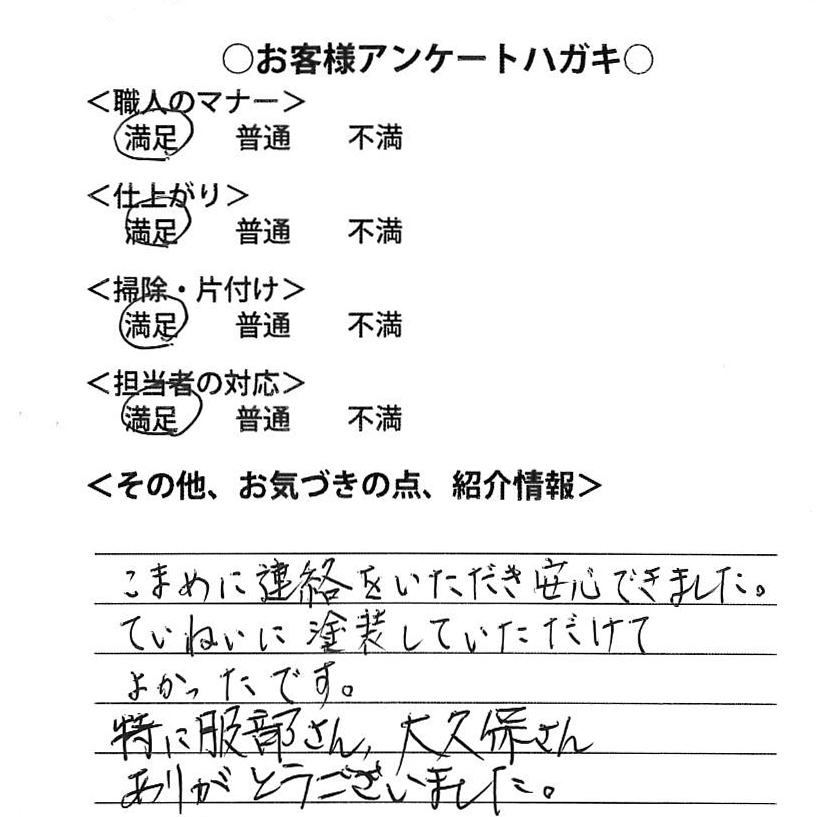 ○お客様アンケートハガキ○
＜職人のマナー＞
満足 普通 不満
＜仕上がり＞
満足 普通 不満
＜掃除・片付け＞
満足 普通 不満
＜担当者の対応＞
満足 普通 不満
＜その他、お気づきの点、紹介情報＞
こまめに連絡をいただき安心できました。
ていねいに塗装していただけて
よかったです。
特に服部さん、大久保さん
ありがとうございました。